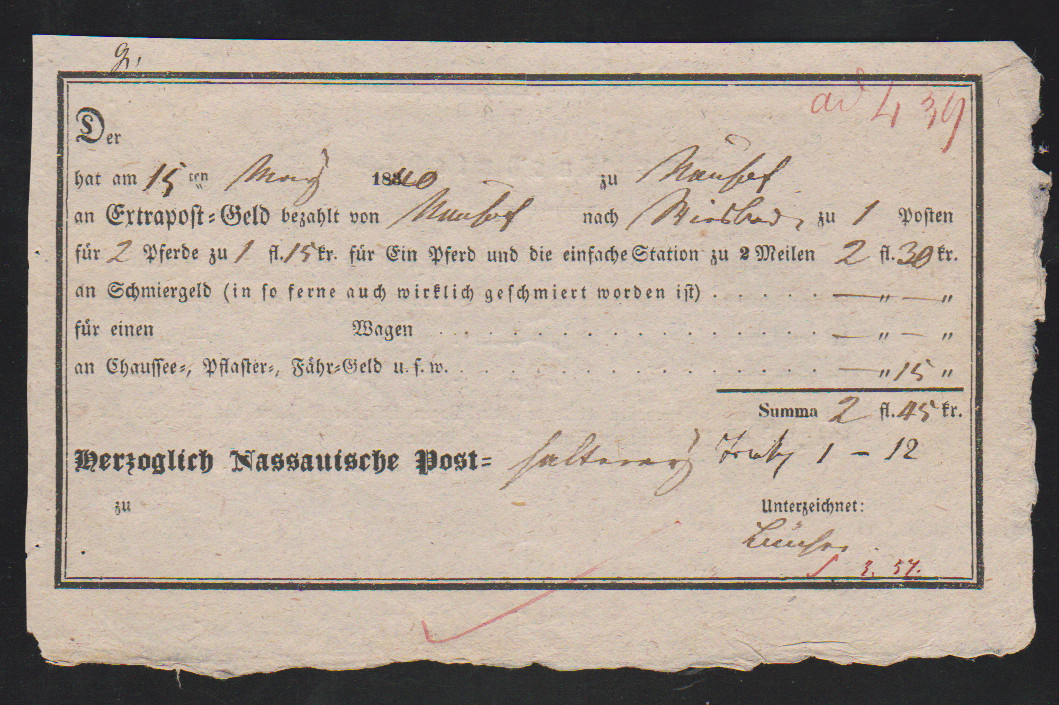 9.
ad 439
Der
hat am 15ten May 1840 zu
an Extrapost-Geld bezahlt von nach Wiesbad. zu 1 Posten
für 2 Pferde zu 1 fl. 15 kr. für Ein Pferd und die einfache Station zu 2 Meilen 2 fl. 30 kr.
an Schmiergeld (in so ferne auch wirklich geschmiert worden ist) . . . . . . — " — "
für einen Wagen . . . . . . . . . . . . . . . . — " — "
an Chaussee-, Pflaster-, Fähr-Geld u. s. w. . . . . . . . . . . . . . . . — " 15 "
Summa 2 fl. 45 kr.
Herzoglich Nassauische Post-halterey 1 – 12
zu Unterzeichnet:
f 3. 57.